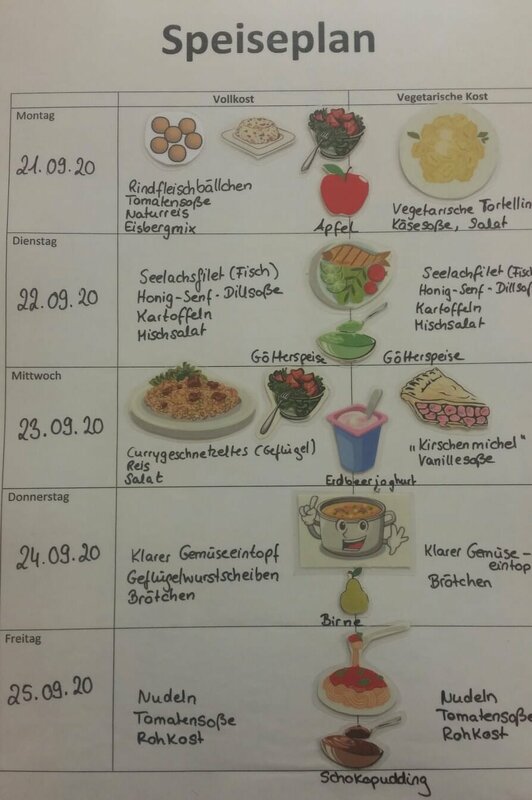 Speiseplan
Vollkost
Vegetarische Kost
Montag
21.09.20
Rindfleischbällchen
Tomatensoße
Naturreis
Eisbergmix
Apfel
Vegetarische Tortellin
Käsesoße, Salat
Dienstag
22.09.20
Seelachsfilet (Fisch)
Honig-Senf-Dillsoße
Kartoffeln
Mischsalat
Götterspeise
Seelachfilet (Fisch
Honig-Senf-Dillsoß
Kartoffeln
Mischsalat
Götterspeise
Mittwoch
23.09.20
Currygeschnetzeltes (Geflügel)
Reis
Salat
Erdbeerjoghurt
„Kirschenmichel"
Vanillesoße
Donnerstag
24.09.20
Klarer Gemüseeintopf
Geflügelwurstscheiben
Brötchen
Birne
Klarer Gemüse-
eintop
Brötchen
Freitag
25.09.20
Nudeln
Tomatensoße
Rohkost
Schokopudding
Nudeln
Tomatensoße
Rohkost